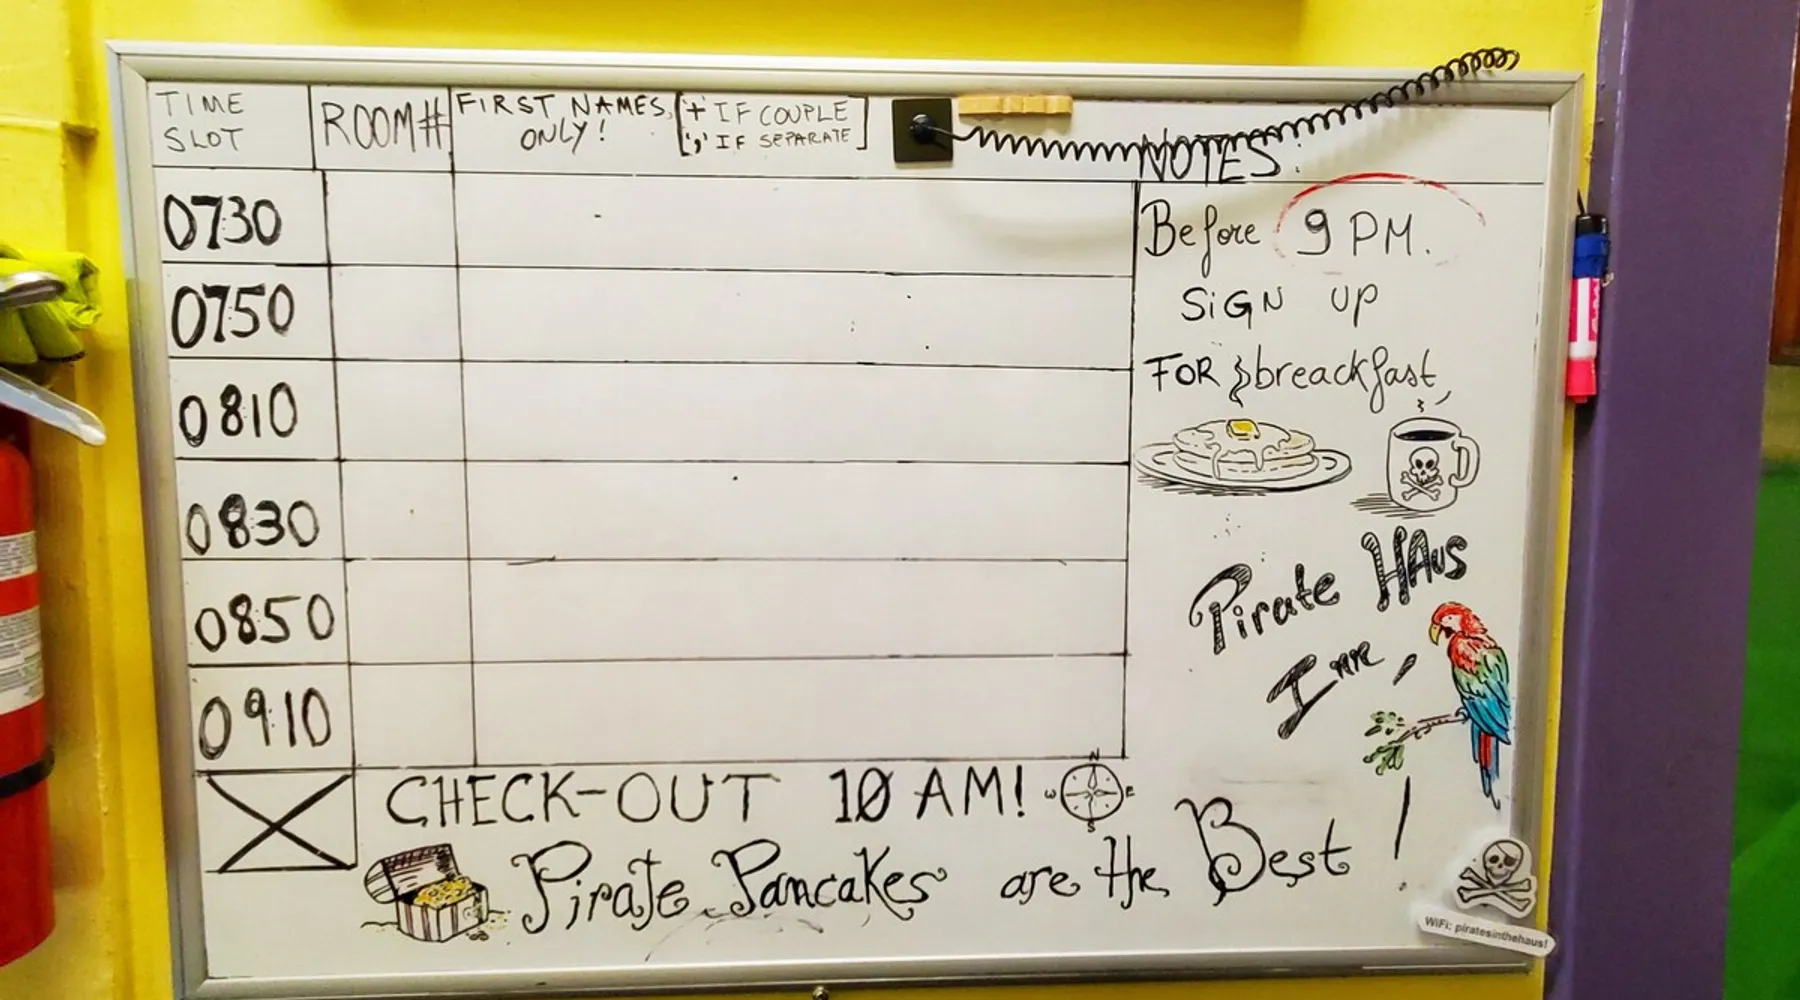 TIME
SLOT
ROOM#
FIRST NAMES
ONLY!
["+" IF COUPLE
"," IF SEPARATE]
NOTES:
0730
0750
0810
0830
0850
0910
Before 9 PM.
SiGN UP
FOR breackfast
Pirate HAus
Inn
N
W E
S
CHECK-OUT 10 AM!
Pirate Pancakes are the Best!
WiFi: piratesinthehaus!